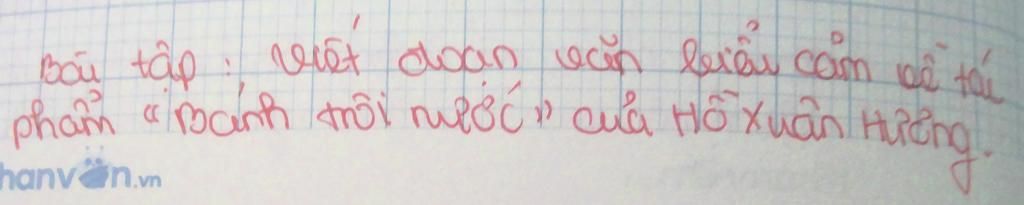 Bài tập: Viết đoạn văn biểu cảm về tác
phẩm "Bánh trôi nước" của Hồ Xuân Hương.
hanvăn.vn